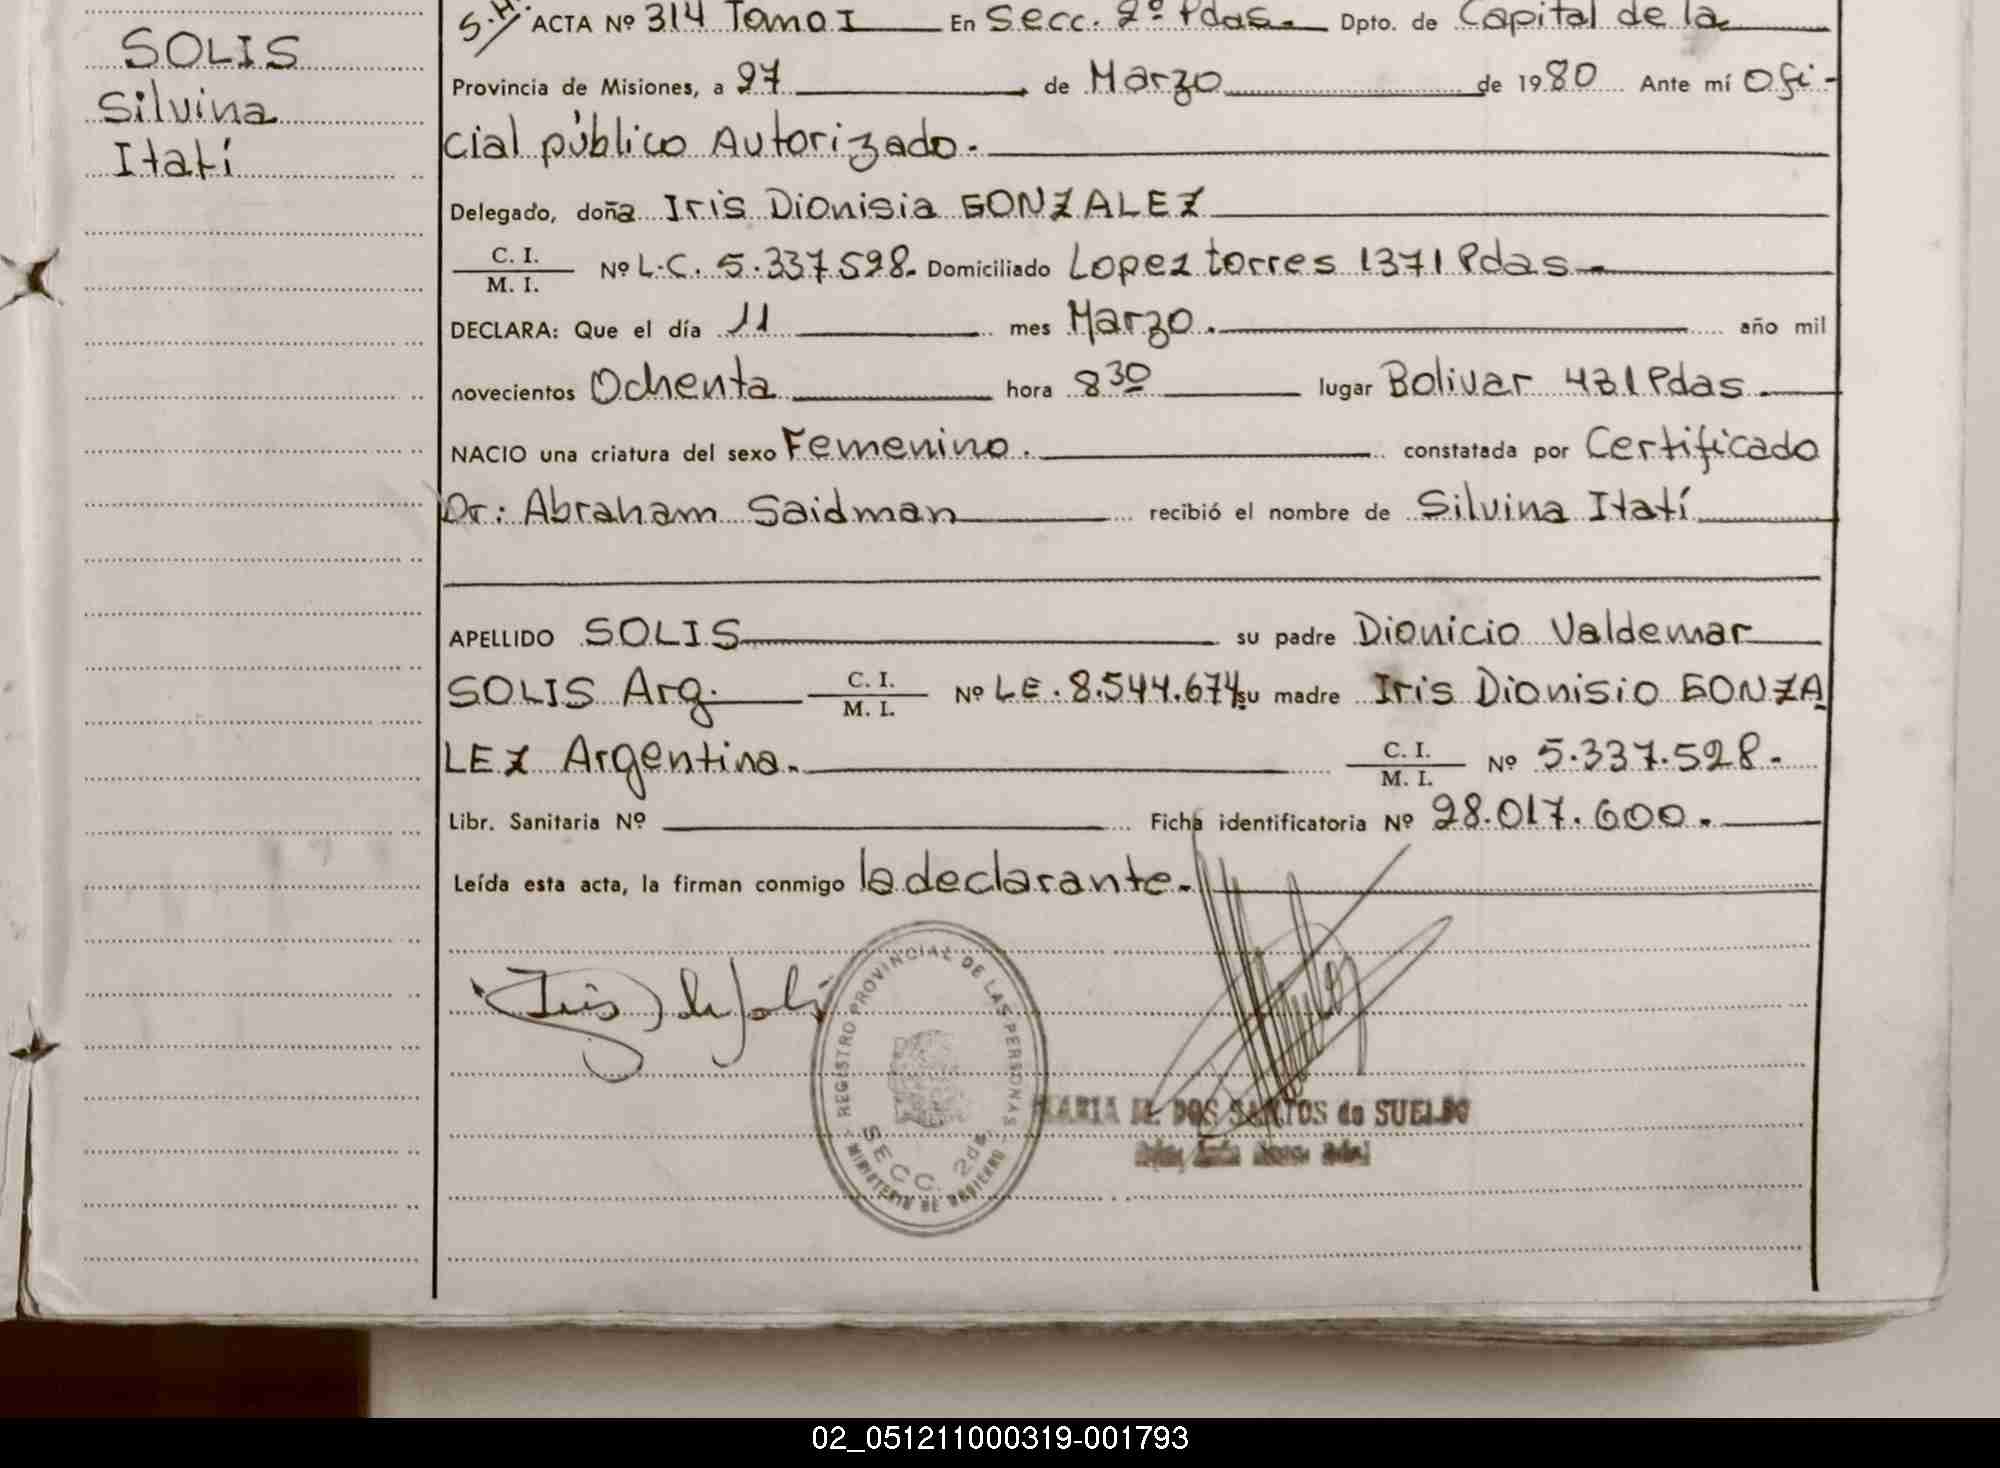 SOLIS
Silvina
Itatí
S.H. ACTA Nº 314 Tomo I En Secc. 2º Pdas. Dpto. de Capital de la
Provincia de Misiones, a 27 de Marzo de 1980 Ante mí Ofi-
cial público Autorizado.
Delegado, doña Iris Dionisia GONZALEZ
C. I.
M. I.
Nº L.C. 5.337.528. Domiciliado Lopez torres 1371 Pdas.
DECLARA: Que el día 11 mes Marzo. año mil
novecientos Ochenta hora 8 30 lugar Bolivar 431 Pdas.
NACIO una criatura del sexo Femenino. constatada por Certificado
Dr: Abraham Saidman recibió el nombre de Silvina Itatí
APELLIDO SOLIS su padre Dionicio Valdemar
SOLIS Arg. C. I. M. I. Nº LE. 8.544.674 su madre Iris Dionisio GONZA
LEZ Argentina. C. I. M. I. Nº 5.337.528.
Libr. Sanitaria Nº Ficha identificatoria Nº 28.017.600.
Leída esta acta, la firman conmigo la declarante.
Iris D de Solis
REGISTRO PROVINCIAL DE LAS PERSONAS
SECC. 2da.
MINISTERIO DE GOBIERNO
MARIA M. DOS SANTOS de SUELDO
02_051211000319-001793